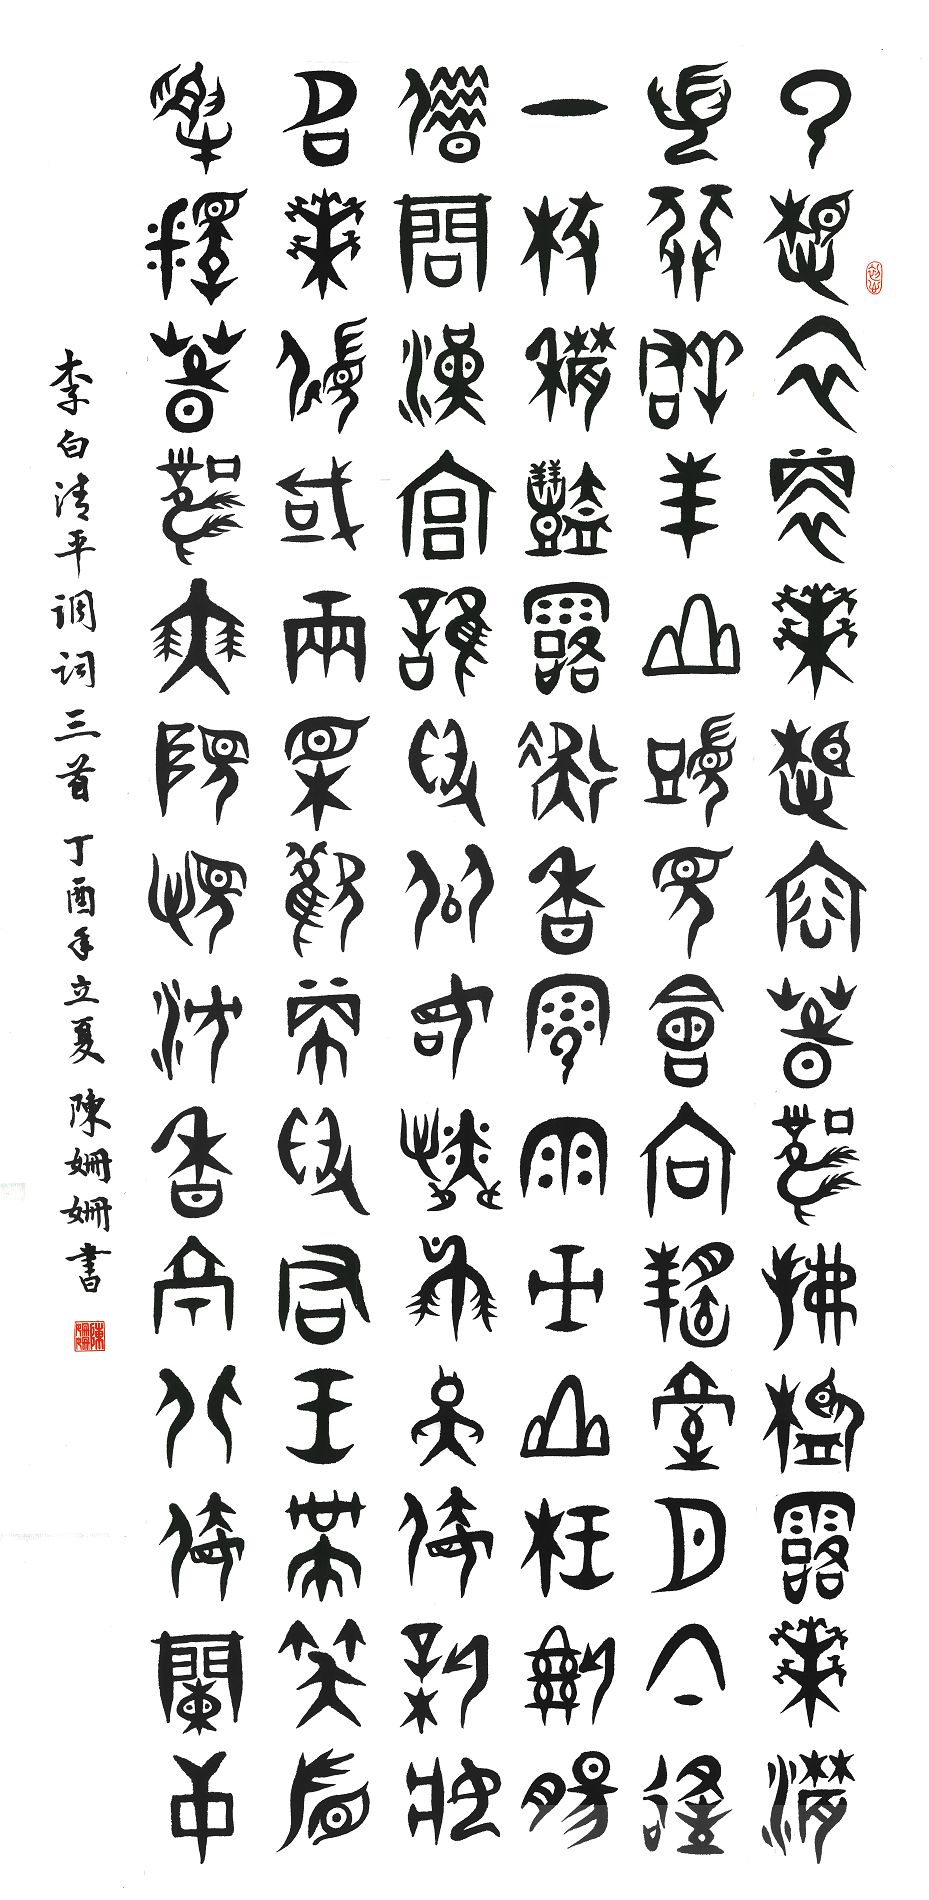 云想衣裳花想容春風拂檻露華濃
若非群玉山頭見會向瑤臺月下逢
一枝穠豔露凝香雲雨巫山枉斷腸
借問漢宮誰得似可憐飛燕倚新妝
名花傾國兩相歡常得君王帶笑看
解釋春風無限恨沉香亭北倚闌干
李白清平调词三首 丁酉年立夏 陳姍姍書
陳姍姍